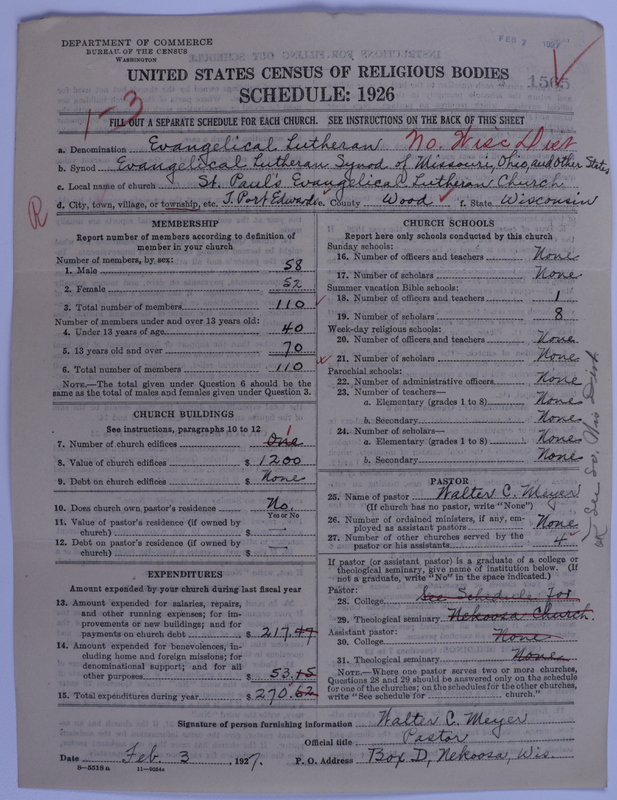 DEPARTMENT OF COMMERCE
BUREAU OF THE CENSUS
WASHINGTON
FEB 7 1927
1565
UNITED STATES CENSUS OF RELIGIOUS BODIES
SCHEDULE: 1926
1-3
FILL OUT A SEPARATE SCHEDULE FOR EACH CHURCH. SEE INSTRUCTIONS ON THE BACK OF THIS SHEET
a. Denomination Evangelical Lutheran No. Wisc Dist
b. Synod Evangelical Lutheran Synod of Missouri, Ohio, and Other States
c. Local name of church St. Paul's Evangelical Lutheran Church
R
d. City, town, village, or township, etc. T. Port Edwards e. County Wood f. State Wisconsin
MEMBERSHIP
Report number of members according to definition of
member in your church
Number of members, by sex:
1. Male 58
2. Female 52
3. Total number of members 110
Number of members under and over 13 years old:
4. Under 13 years of age 40
5. 13 years old and over 70
6. Total number of members 110
NOTE.—The total given under Question 6 should be
same as the total of males and females given under Question 3.
CHURCH BUILDINGS
See instructions, paragraphs 10 to 12
7. Number of church edifices One 1
8. Value of church edifices $ 1200
9. Debt on church edifices $ None
10. Does church own pastor's residence No.
Yes or No
11. Value of pastor's residence (if owned by
church) $ —
12. Debt on pastor's residence (if owned by
church) $ —
EXPENDITURES
Amount expended by your church during last fiscal year
13. Amount expended for salaries, repairs,
and other running expenses; for im-
provements or new buildings; and for
payments on church debt $ 217.47
14. Amount expended for benevolences, in-
cluding home and foreign missions; for
denominational support; and for all
other purposes $ 53.15
15. Total expenditures during year $ 270.62
CHURCH SCHOOLS
Report here only schools conducted by this church
Sunday schools:
16. Number of officers and teachers None
17. Number of scholars None
Summer vacation Bible schools:
18. Number of officers and teachers 1
19. Number of scholars 8
Week-day religious schools:
20. Number of officers and teachers None
21. Number of scholars None
Parochial schools:
22. Number of administrative officers None
23. Number of teachers—
a. Elementary (grades 1 to 8) None
b. Secondary None
24. Number of scholars—
a. Elementary (grades 1 to 8) None
b. Secondary None
PASTOR
25. Name of pastor Walter C. Meyer
(If church has no pastor, write "None")
26. Number of ordained ministers, if any, em-
ployed as assistant pastors None
27. Number of other churches served by the
pastor or his assistants 4
If pastor (or assistant pastor) is a graduate of a college or
theological seminary, give name of institution below. (If
not a graduate, write "No" in the space indicated.)
Pastor:
28. College See Schedule for
29. Theological seminary Nekoosa Church.
Assistant pastor:
30. College None
31. Theological seminary None
NOTE.—Where one pastor serves two or more churches,
Questions 28 and 29 should be answered only on the schedule
for one of the churches; on the schedules for the other churches,
write "See schedule for church."
Signature of person furnishing information Walter C. Meyer
Official title Pastor
Date Feb. 3, 1927. P. O. Address Box D, Nekoosa, Wis.
8—5518a 11—9054